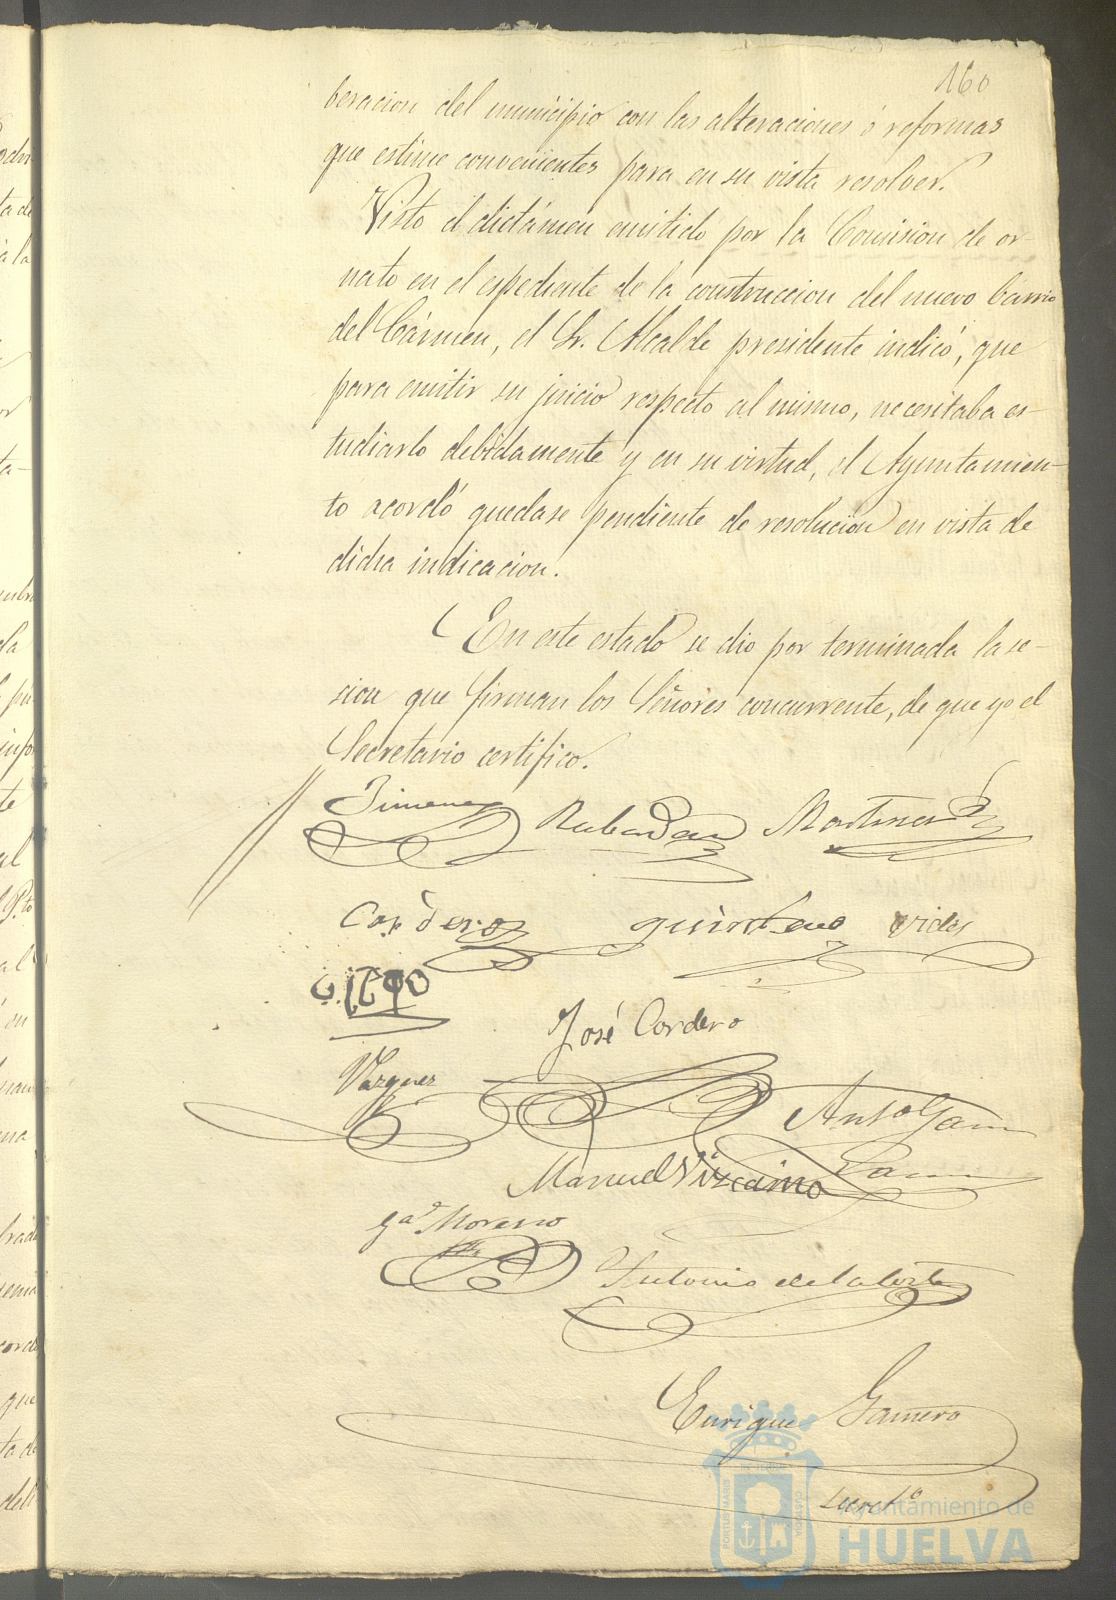 160
beracion del municipio con las alteraciones ó reformas
que estime convenientes para en su vista resolver.
Visto el dictámen emitido por la Comision de or-
nato en el espediente de la construccion del nuevo barrio
del Cármen, el Sr. Alcalde presidente indicó, que
para emitir su juicio respecto al mismo, necesitaba es-
tudiarlo debidamente y en su virtud, el Ayuntamien-
to acordó quedase pendiente de resolucion en vista de
dicha indicacion.
En este estado se dio por terminada la se-
sion que firman los Señores concurrente, de que yo el
Secretario certifico.
Jimenez Rabadan Martinez
Cordero Quintero Vides
José Cordero
Vazquez
Antº Garcia
Garcia
Manuel Vizcaino
Gª Moreno
Antonio de la Corte
Enrique Gamero
Secretº
Ayuntamiento de
HUELVA